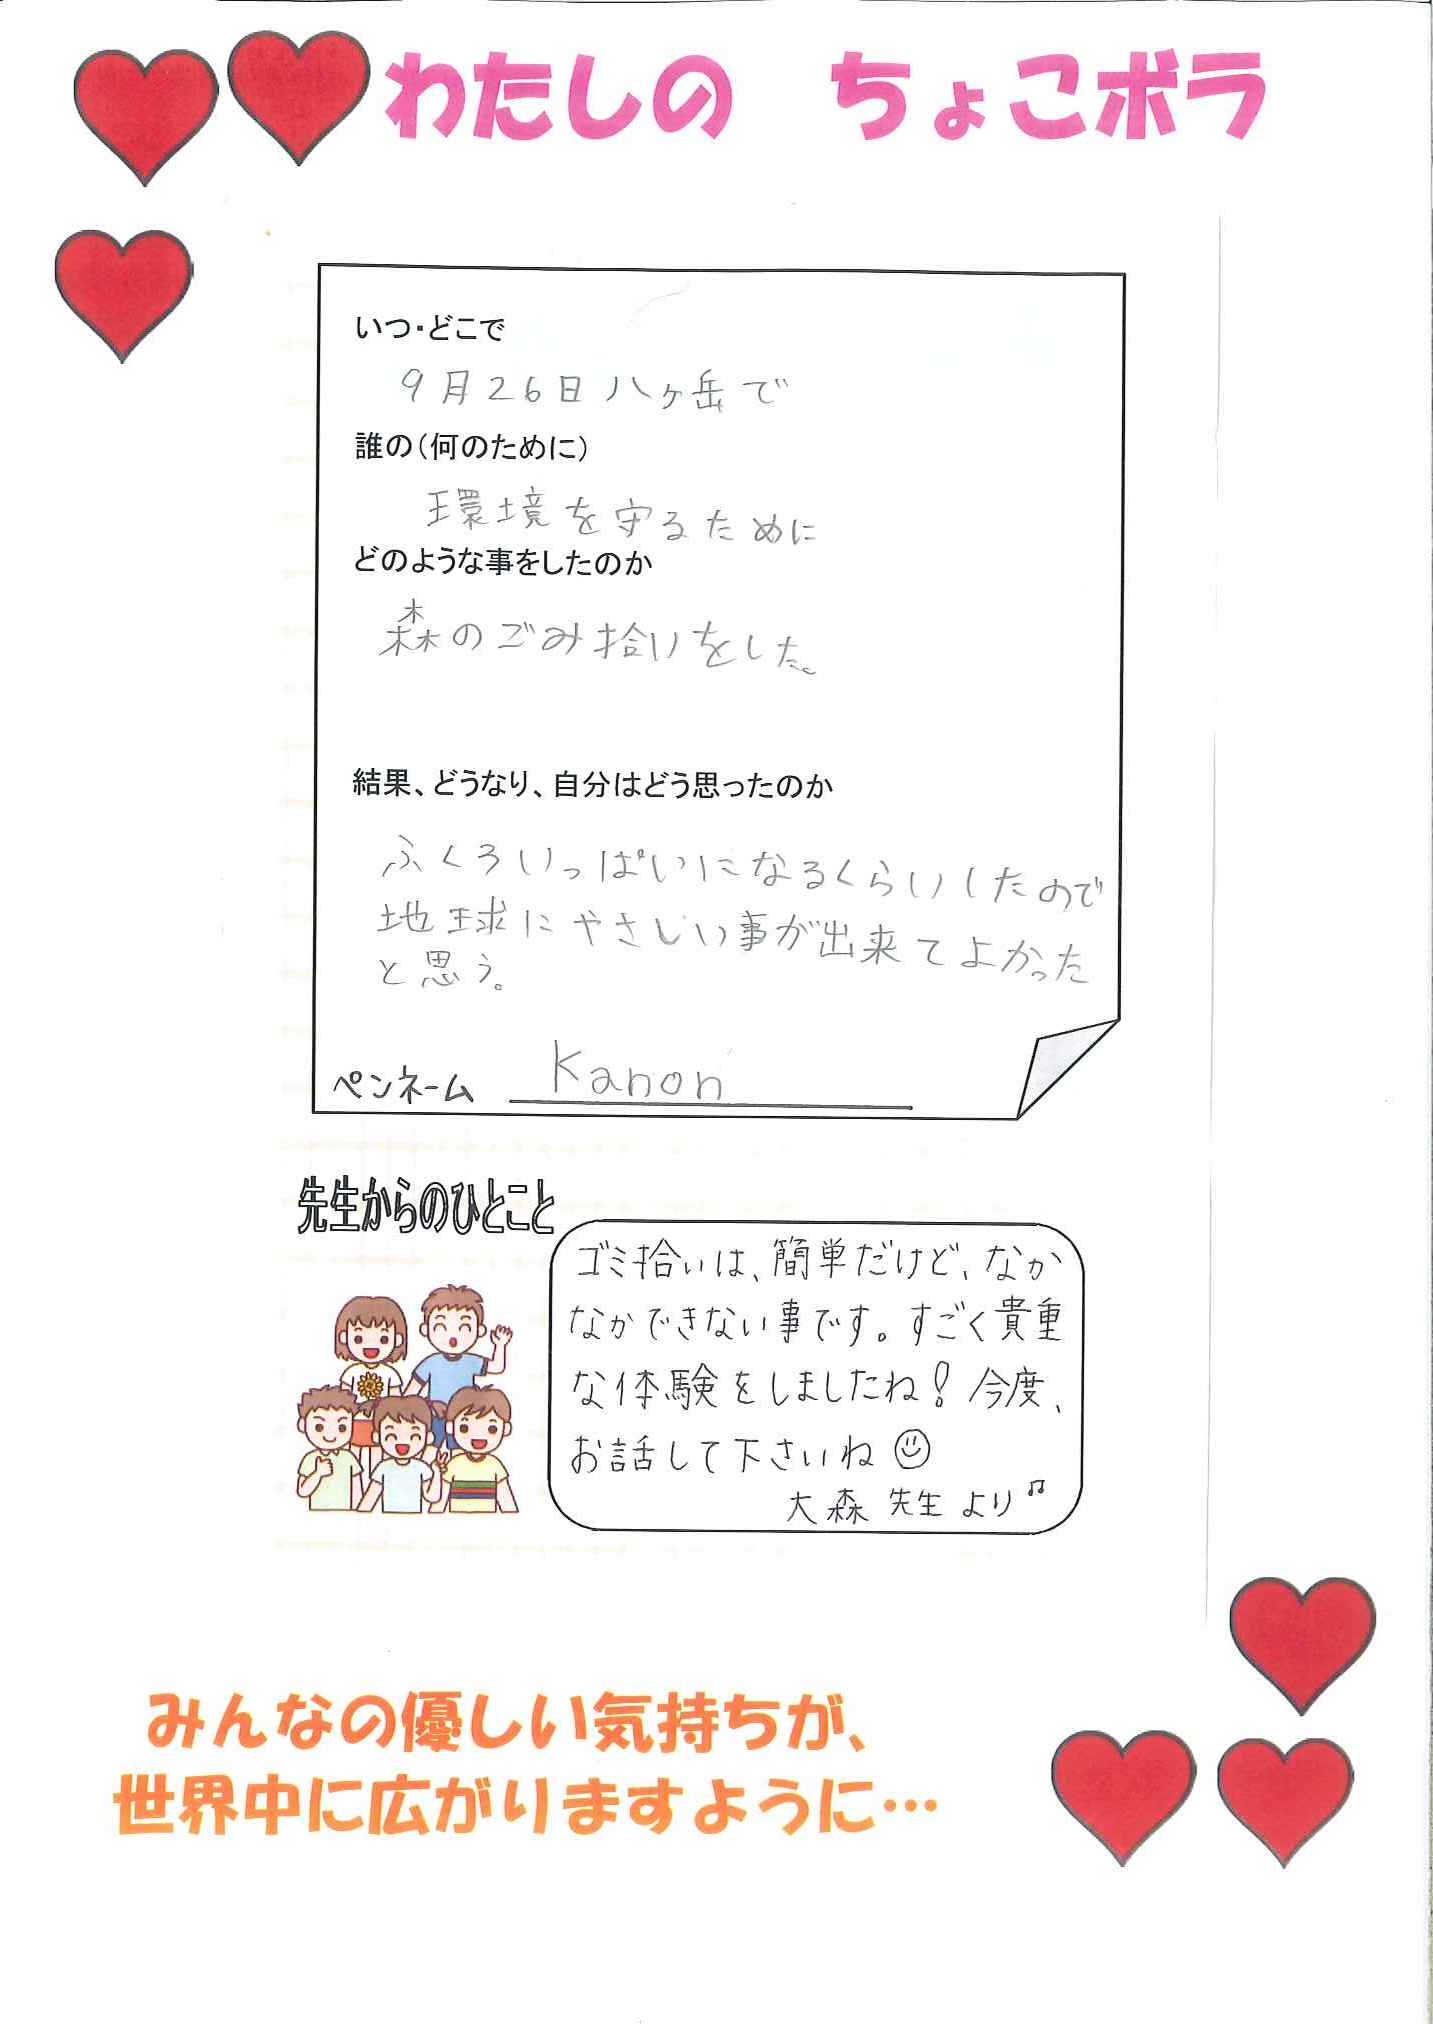 わたしの　ちょこボラ
いつ・どこで
9月26日八ヶ岳で
誰の(何のために)
環境を守るために
どのような事をしたのか
森のごみ拾いをした。
結果、どうなり、自分はどう思ったのか
ふくろいっぱいになるくらいしたので
地球にやさしい事が出来てよかった
と思う。
ペンネーム Kanon
先生からのひとこと
ゴミ拾いは、簡単だけど、なか
なかできない事です。すごく貴重
な体験をしましたね!今度、
お話して下さいね
大森先生より♫
みんなの優しい気持ちが、
世界中に広がりますように…